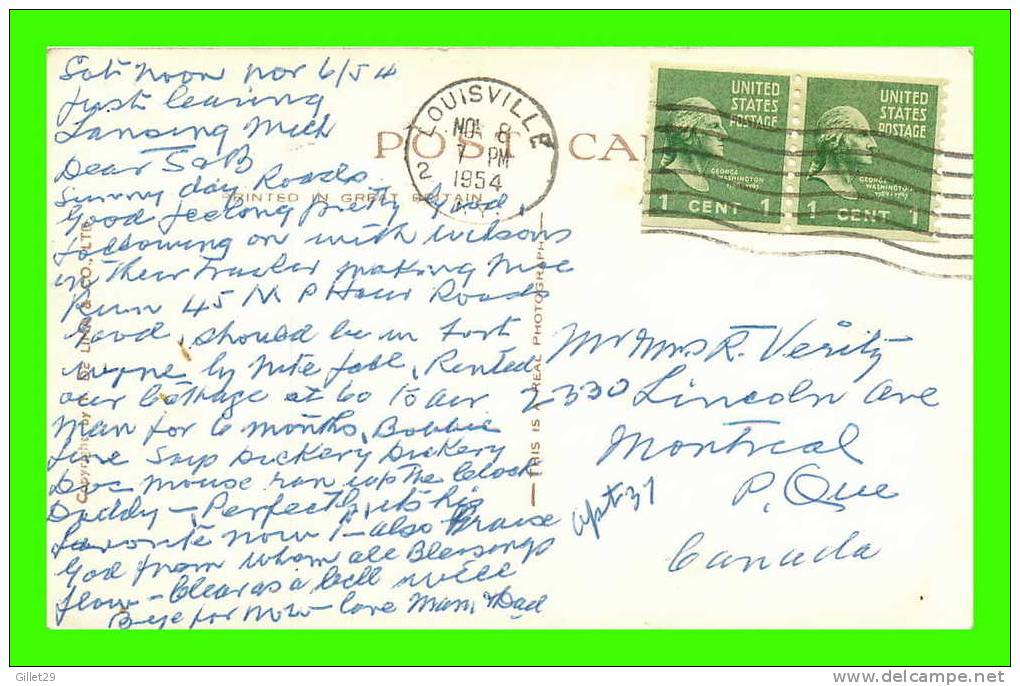 Sat Noon Nov 6/54
Just leaving
Lansing Mich
Dear S & B
Sunny day Roads
Good feeling pretty Good,
following on with Wilsons
in their trailer making nice
Run 45 M P Hour Roads
Good, should be in Fort
Wayne by Nite fall, Rented
our Cottage at 60 to air
Man for 6 months, Bobbie
fine Says Dickery Dickery
Doc mouse ran up the Clock
Daddy - Perfectly, its his
favorite now - also Praise
God from whom all Blessings
flow - Clear as a bell well
Bye for Now - love Mam & Dad
POST CA
PRINTED IN GREAT BRITAIN
THIS IS A REAL PHOTOGRAPH
Copyright by
& CO., LTD.
LOUISVILLE
NOV 8
7 PM
1954
2
KY.
UNITED
STATES
POSTAGE
GEORGE
WASHINGTON
1 CENT 1
UNITED
STATES
POSTAGE
GEORGE
WASHINGTON
1 CENT 1
Mr Mrs R. Verity
2330 Lincoln Ave
Montreal
P. Que
apt 37
Canada
Gillet29
delcampe.net